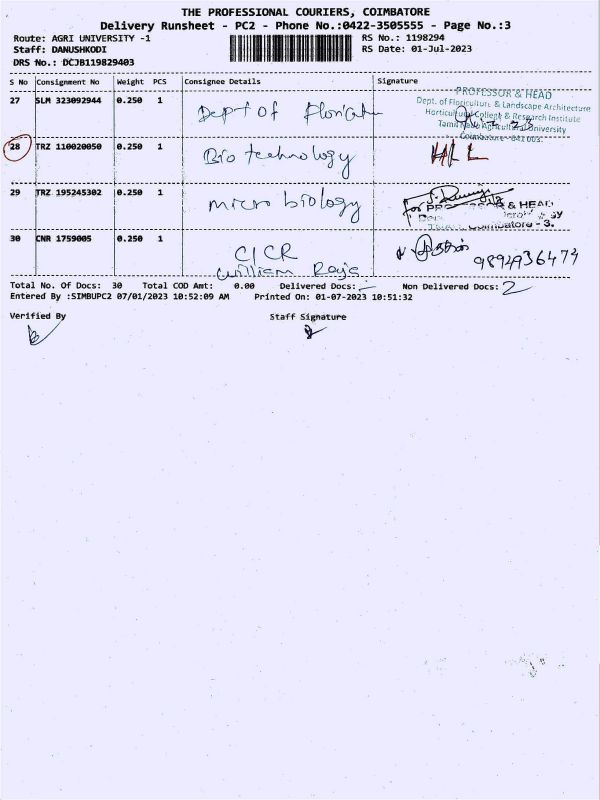 THE PROFESSIONAL COURIERS, COIMBATORE
Delivery Runsheet - PC2 - Phone No.:0422-3505555 - Page No.:3
Route: AGRI UNIVERSITY -1 RS No.: 1198294
Staff: DANUSHKODI RS Date: 01-Jul-2023
DRS No.: DCJB119829403
S No Consignment No Weight PCS Consignee Details Signature
27 SLM 323092944 0.250 1 Dept of
PROFESSOR & HEAD
Dept. of Floriculture & Landscape Architecture
Horticultural College & Research Institute
Tamil Nadu Agricultural University
Coimbatore - 641 003.
28 TRZ 110020050 0.250 1 Bio technology
29 TRZ 195245302 0.250 1 micro biology
for PROFESSOR & HEAD
Coimbatore - 3.
30 CNR 1759005 0.250 1 CICR
William
Total No. Of Docs: 30 Total COD Amt: 0.00 Delivered Docs: Non Delivered Docs: 2
Entered By :SIMBUPC2 07/01/2023 10:52:09 AM Printed On: 01-07-2023 10:51:32
Verified By Staff Signature